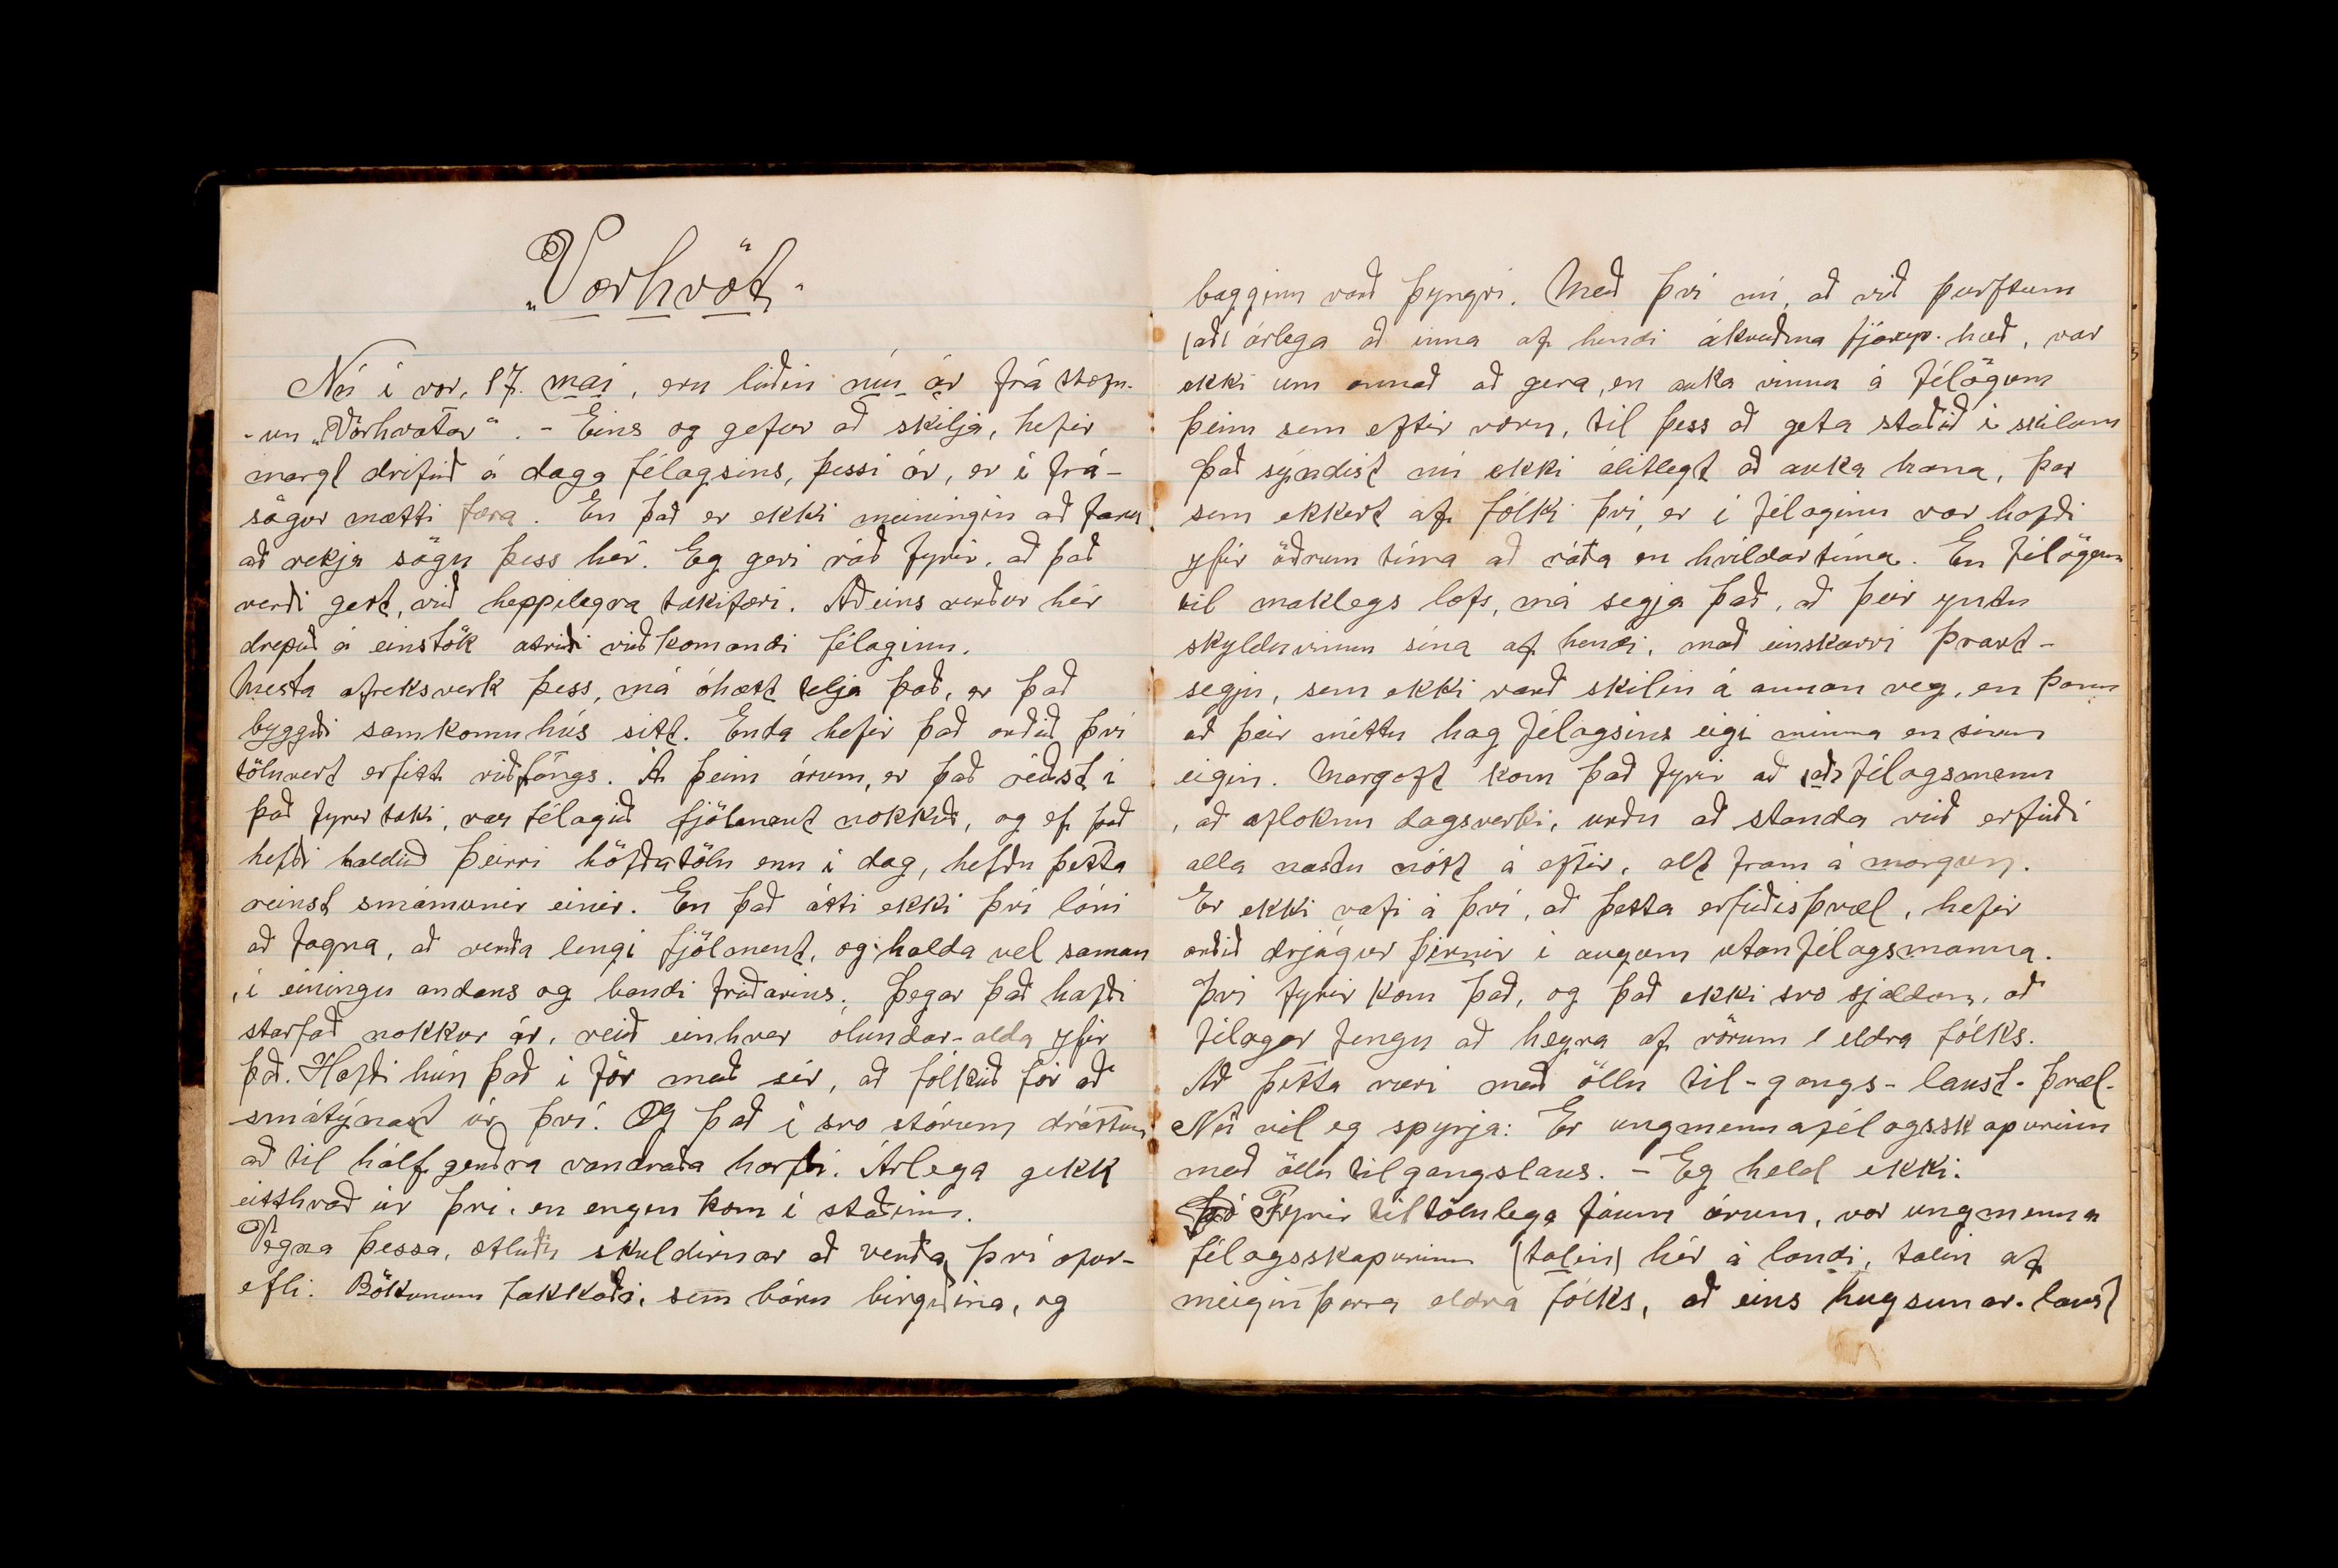 „Vorhvöt"
Nú í vor, 17. maí, eru liðin níu ár frá stofn-
-un „Vorhvatar". - Eins og gefur að skilja, hefir
margt drifið á daga félagsins, þessi ár, er í frá-
sögur mætti færa. En það er ekki meiningin að fara
að rekja sögu þess hér. Eg geri ráð fyrir, að það
verði gert, við heppilegra tækifæri. Aðeins verður hér
drepið á einstök atriði viðkomandi félaginu.
Mesta afreksverk þess, má óhætt telja það, er það
byggði samkomuhús sitt. Enda hefir það orðið því
töluvert erfitt viðfangs. Á þeim árum, er það réðist í
það fyrirtæki, var félagið fjölment nokkuð, og ef það
hefði haldið þeirri höfðatölu enn í dag, hefðu þetta
reinst smámunir einir. En það átti ekki því láni
að fagna, að verða lengi fjölment, og halda vel saman
, í einingu andans og bandi friðarins. Þegar það hafði
starfað nokkur ár, reið einhver ólundar-alda yfir
það. Hafði hún það í för með sér, að fólkið fór að
smátýnast úr því. Og það í svo stórum dráttum
að til hálfgerðra vandræða horfði. Árlega gekk
eitthvað úr því, en engin kom í staðinn.
Vegna þessa, ætluðu skuldirnar að verða því ofur-
efli. Bökunum fækkaði, sem báru birgðina, og
bagginn varð þyngri. Með því nú, að við þurftum
(að) árlega að inna af hendi ákveðna fjárup.hæð, var
ekki um annað að gera, en auka vinnu á félögum
þeim sem eftir voru, til þess að geta staðið í skilum
Það sýndist nú ekki álitlegt að auka hana, þar
sem ekkert af fólki því, er í félaginu var hafði
yfir öðrum tíma að ráða en hvíldartíma. En félögum
til maklegs lofs, má segja það, að þeir yntu
skylduvinnu sína af hendi, með einskærri þraut-
segju, sem ekki varð skilin á annan veg, en þann
að þeir mættu hag félagsins eigi minna en sinn
eigin. Margoft kom það fyrir að (að) félagsmenn
, að afloknu dagsverki, urðu að standa við erfiði
alla næstu nótt á eftir, alt fram á morgun.
Er ekki vafi á því, að þetta erfiðisþræl, hefir
orðið drjúgur þirnir í augum utanfélagsmanna.
Því fyrir kom það, og það ekki svo sjaldan, að
félagar fengu að heyra af vörum eldra fólks.
Að þetta væri með öllu til-gangs-laust-þræl-
Nú vil eg spyrja: Er ungmennafélagsskapurinn
með öllu tilgangslaus. - Eg held ekki.
Fyrir tiltölulega fáum árum, var ungmenna
félagsskapurinn (talin) hér á landi, talin af
meiginþorra eldra fólks, að eins hugsunar-laust